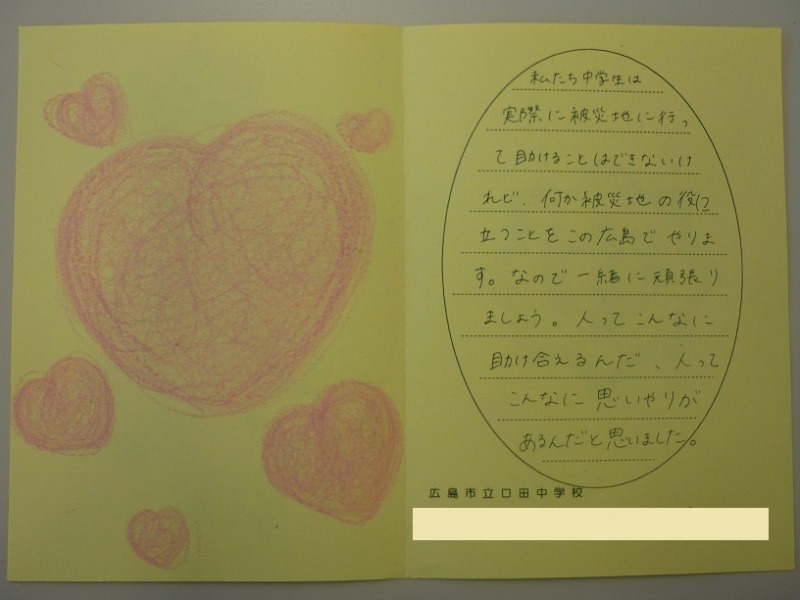 私たち中学生は
実際に被災地に行っ
て助けることはできないけ
れど、何か被災地の役に
立つことをこの広島でやりま
す。なので一緒に頑張り
ましょう。人ってこんなに
助け合えるんだ、人って
こんなに思いやりが
あるんだと思いました。
広島市立口田中学校